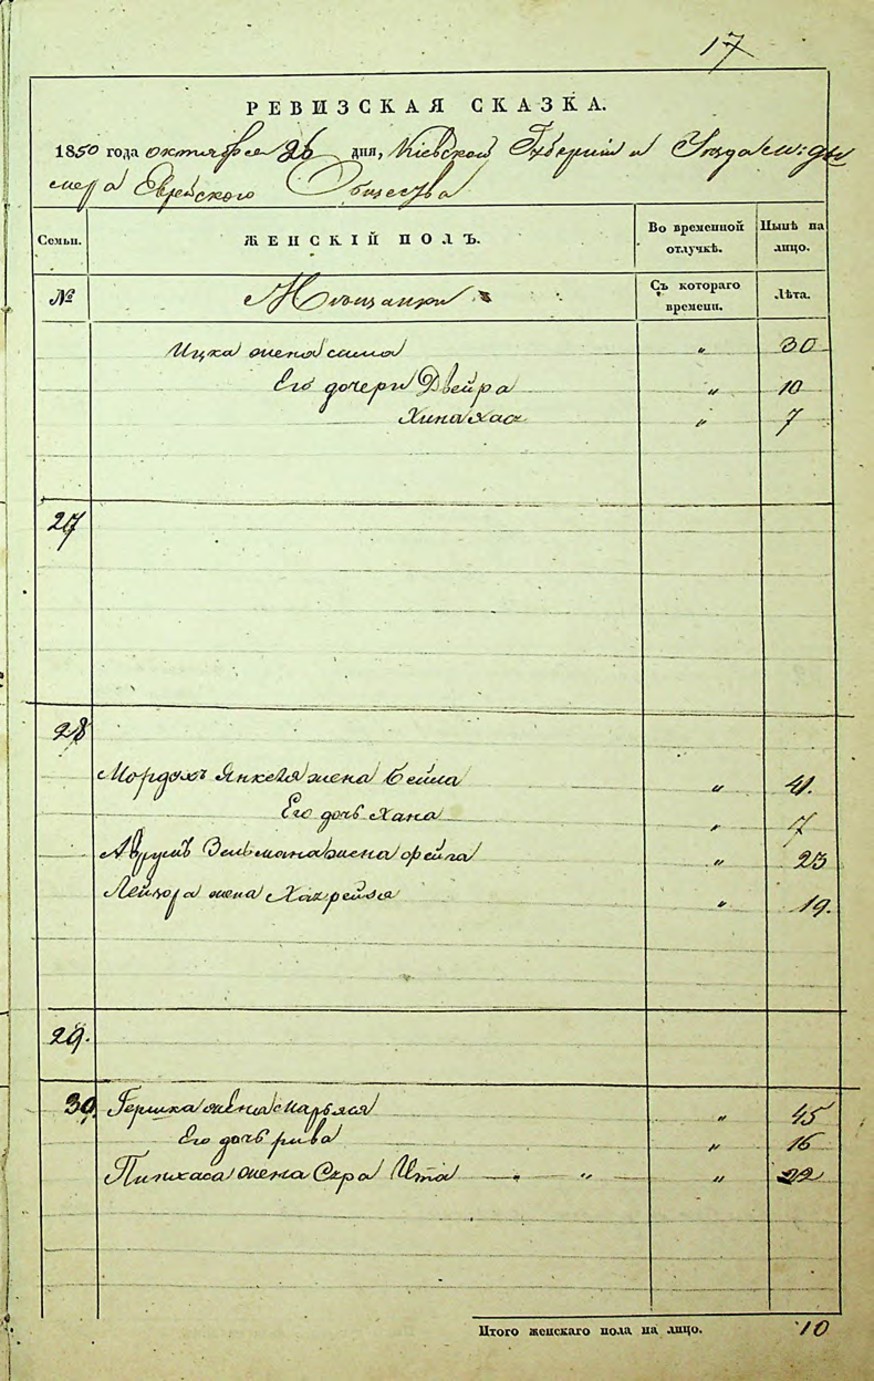 17
РЕВИЗСКАЯ СКАЗКА.
1850 года октября 26 дня, Кіевской Губерніи и Уезда
Еврейского Общества
Семьи. ЖЕНСКІЙ ПОЛЪ. Во временной отлучкѣ. Нынѣ на лицо.
№ Мещанки Съ котораго времени. Лѣта.
Ицка жена сима " 30
Его дочери Двейра " 10
Хина хая " 7
27
28
Мордухъ Янкеля жена Бейла " 41.
Его дочь хана " 7
Аврумъ Зельмана жена фейга " 23
Лейзора жена " 19.
29.
30. Гершка жена марьяся " 45
Его дочь рива " 16
Пинхаса жена Сура Ита " " 22
Итого женскаго пола на лицо. 10